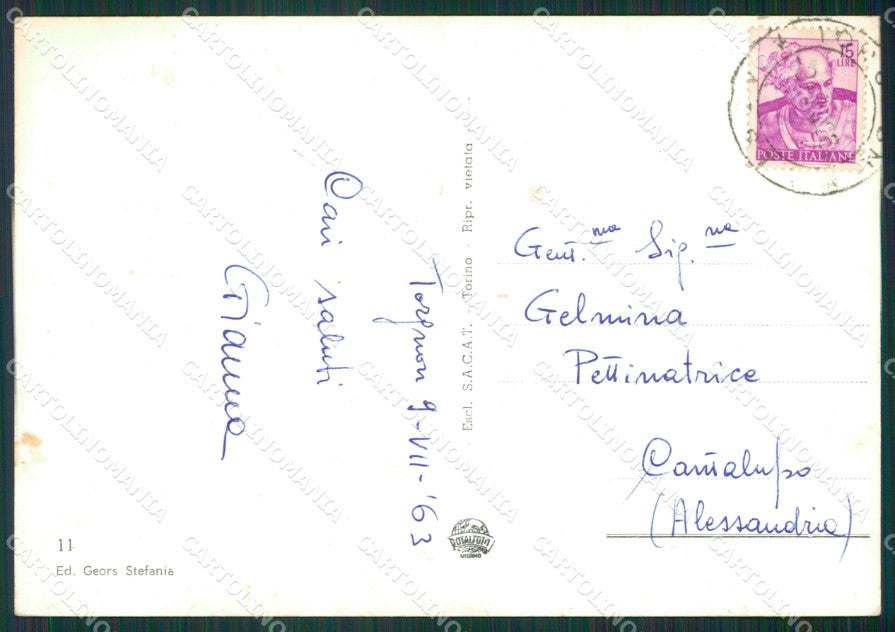 Torgnon 9-VII-'63
Cari saluti
Gianna
Gent.ma Sig.na
Gelmina
Pettinatrice
Cantalupo
(Alessandria)
15
LIRE
POSTE ITALIANE
Escl. S.A.C.A.T. - Torino - Ripr. vietata
ROTALFOTO
MILANO
11
Ed. Geors Stefania
CARTOLINOMANIA